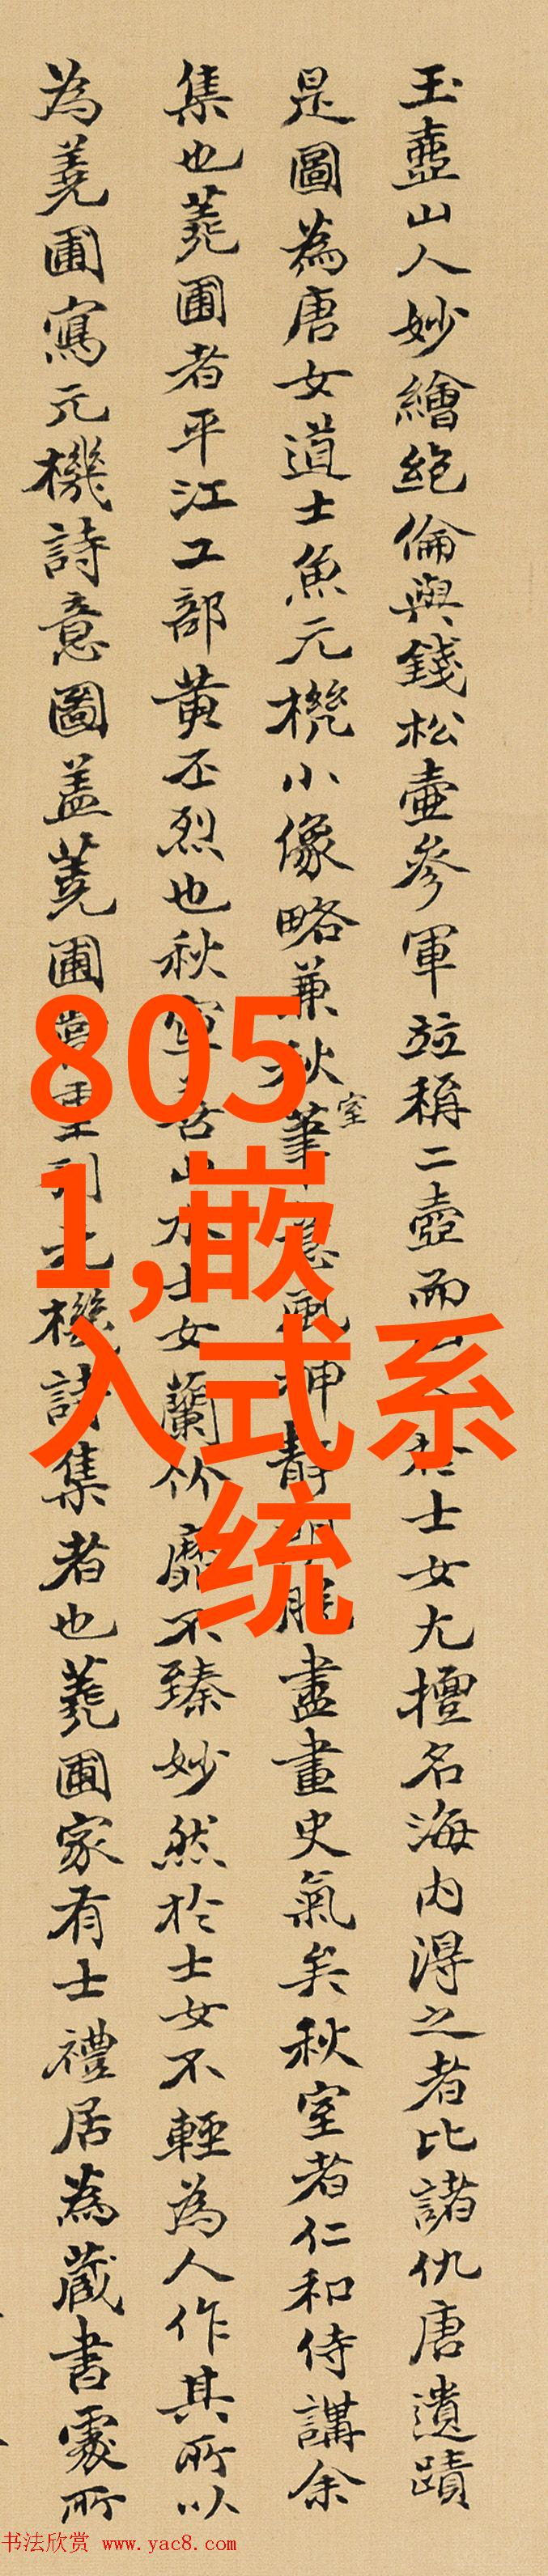 玉壺山人妙繪絶倫與錢松壺參軍竝稱二壺而於士女尤擅名海内得之者比諸仇唐遺蹟
是圖為唐女道士魚元機小像略兼秋室筆意風神靜能盡畫史氣矣秋室者仁和侍講余
集也蕘圃者平江工部黃丕烈也秋室善山水士女蘭竹靡不臻妙然於士女不輕為人作其所以
為蕘圃寫元機詩意圖蓋蕘圃重刊元機詩集者也蕘圃家有士禮居為藏書處所
805
1,嵌
入式系
统
书法欣赏 www.yac8.com